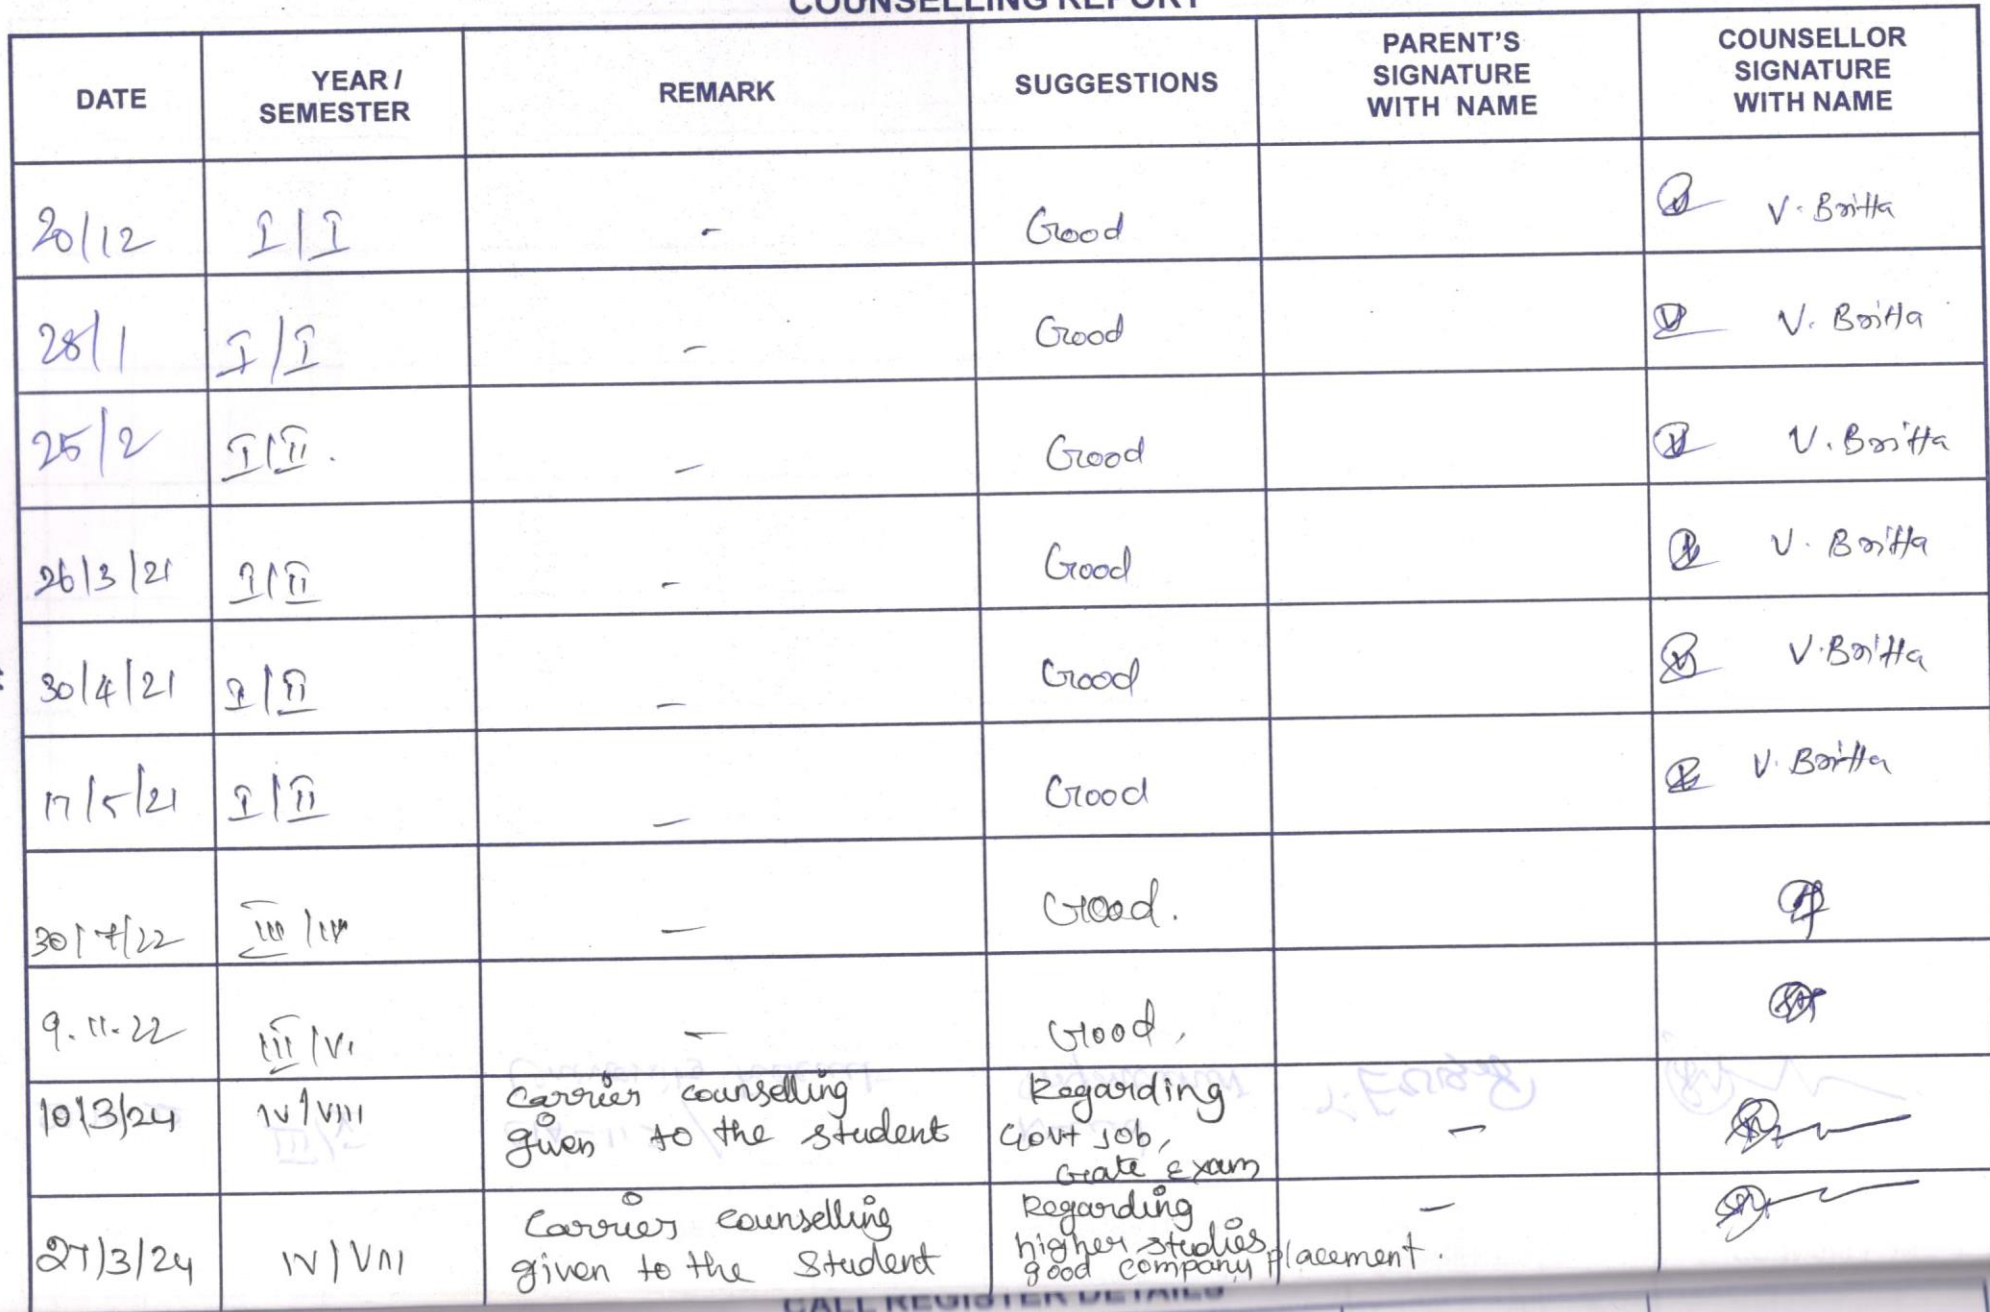 COUNSELLING REPORT
DATE YEAR / SEMESTER REMARK SUGGESTIONS PARENT'S SIGNATURE WITH NAME COUNSELLOR SIGNATURE WITH NAME
20/12 I/I - Good V. Britta
28/1 I/I - Good V. Britta
25/2 I/II. - Good V. Britta
26/3/21 I/II - Good V. Britta
30/4/21 I/II - Good V. Britta
17/5/21 I/II - Good V. Britta
30/7/22 III/ - Good.
9.11.22 III/VI - Good,
10/3/24 IV/VIII Carrier counselling given to the student Regarding Govt job, Gate Exam -
27/3/24 IV/VIII Carrier counselling given to the Student Regarding higher studies good company placement. -
CALL REGISTER DETAILS